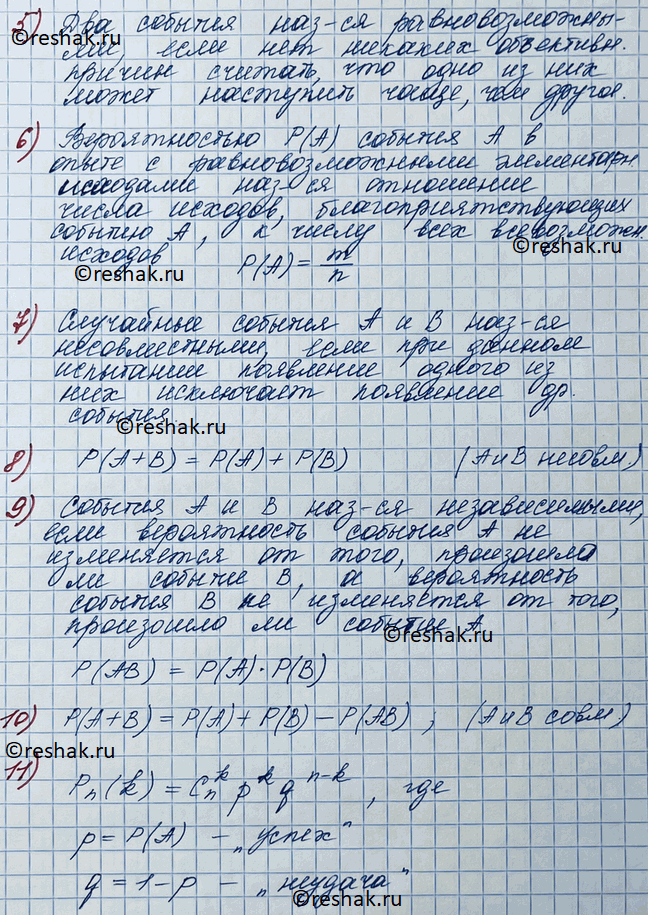 5) Два события наз-ся равновозможны-
ми, если нет никаких объективн.
причин считать, что одно из них
может наступить чаще, чем другое.
6) Вероятностью P(A) события A в
опыте с равновозможными элементарн.
исходами наз-ся отношение
числа исходов, благоприятствующих
событию A, к числу всех всевозможн.
исходов P(A) = m/n
©reshak.ru
©reshak.ru
7) Случайные события A и B наз-ся
несовместными, если при данном
испытании появление одного из
них исключает появление др.
события
©reshak.ru
8) P(A+B) = P(A) + P(B) (A и B несовм.)
9) События A и B наз-ся независимыми,
если вероятность события A не
изменяется от того, произошло
ли событие B, а вероятность
события B не изменяется от того,
произошло ли событие A
©reshak.ru
P(AB) = P(A)·P(B)
10) P(A+B) = P(A) + P(B) – P(AB) ; (A и B совм)
©reshak.ru
11) Pₙ(k) = Cₙᵏ pᵏ qⁿ⁻ᵏ, где
p = P(A) – „успех"
q = 1 – p – „неудача"
©reshak.ru